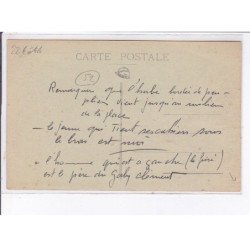 CARTE POSTALE
52
Remarquer que l'herbe bordée de peu
pliers vient jusqu'au milieu
de la place
— le jeune qui tient ses cahiers sous
le bras est moi
— l'homme qui est à gauche (le képi)
est le père de Gaby Clément